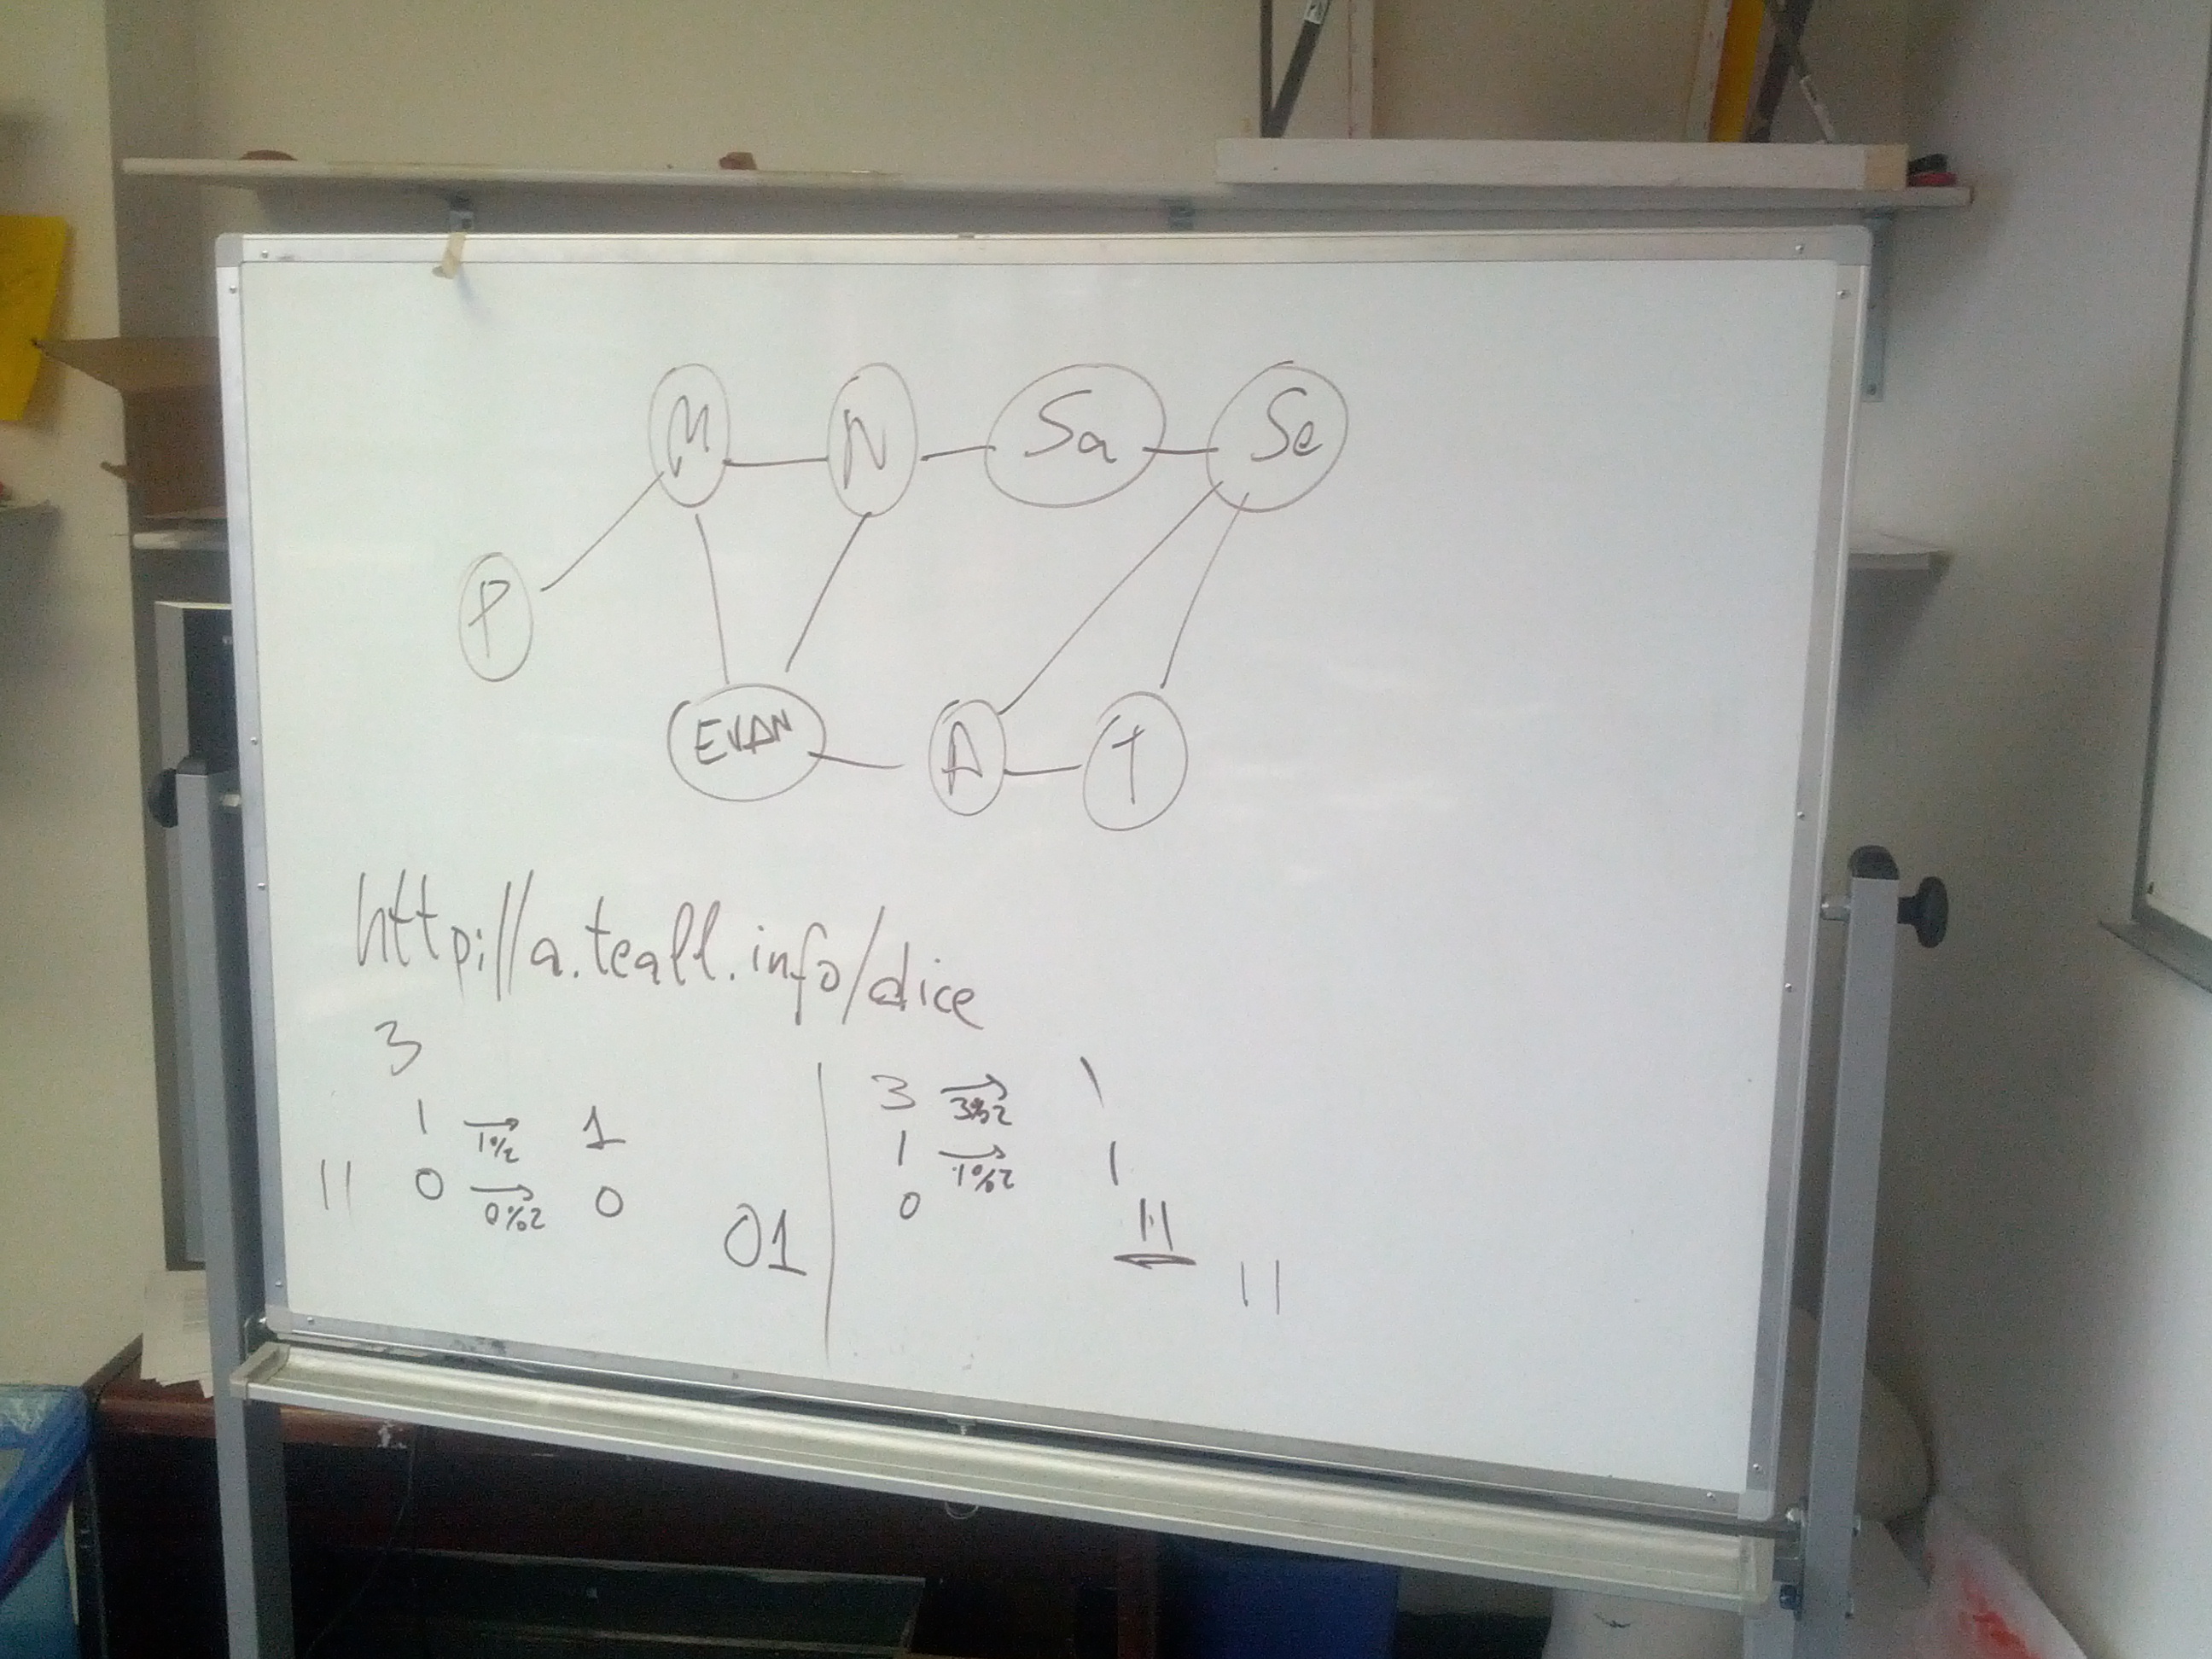 M N Sa Se
P
EVAN A T
http://a.teall.info/dice
3
1 → 1%2 1
11 0 → 0%2 0
01
3 → 3%2 1
1 → 1%2 1
0
11
11